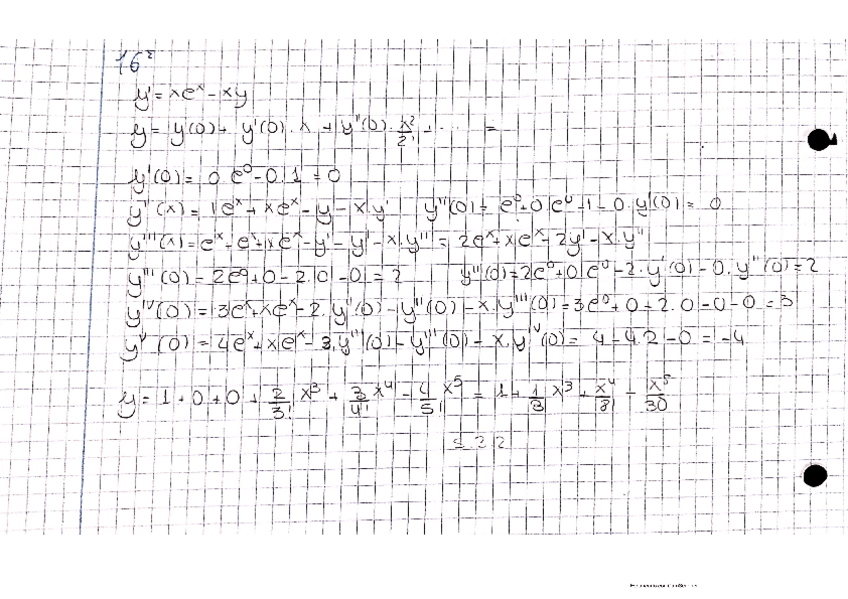 16²
y' = xeˣ - xy
y = y(0) + y'(0)·x + y''(0)·x²/2! + ... =
y'(0) = 0·e⁰ - 0·1 = 0
y''(x) = 1eˣ + xeˣ - y - xy' y''(0) = e⁰ + 0·e⁰ - 1 - 0·y'(0) = 0
y'''(x) = eˣ + eˣ + xeˣ - y' - y' - x·y'' = 2eˣ + xeˣ - 2y' - x·y''
y'''(0) = 2e⁰ + 0 - 2·0 - 0 = 2 y'''(0) = 2e⁰ + 0·e⁰ - 2·y'(0) - 0·y''(0) = 2
yᴵⱽ(0) = 3eˣ + xeˣ - 2·y''(0) - y''(0) - x·y'''(0) = 3e⁰ + 0 - 2·0 - 0 - 0 = 3
yⱽ(0) = 4eˣ + xeˣ - 3·y'''(0) - y'''(0) - x·yᴵⱽ(0) = 4 - 4·2 - 0 = -4
y = 1 + 0 + 0 + 2/3! x³ + 3/4! x⁴ - 4/5! x⁵ = 1 + 1/3 x³ + x⁴/8 - x⁵/30